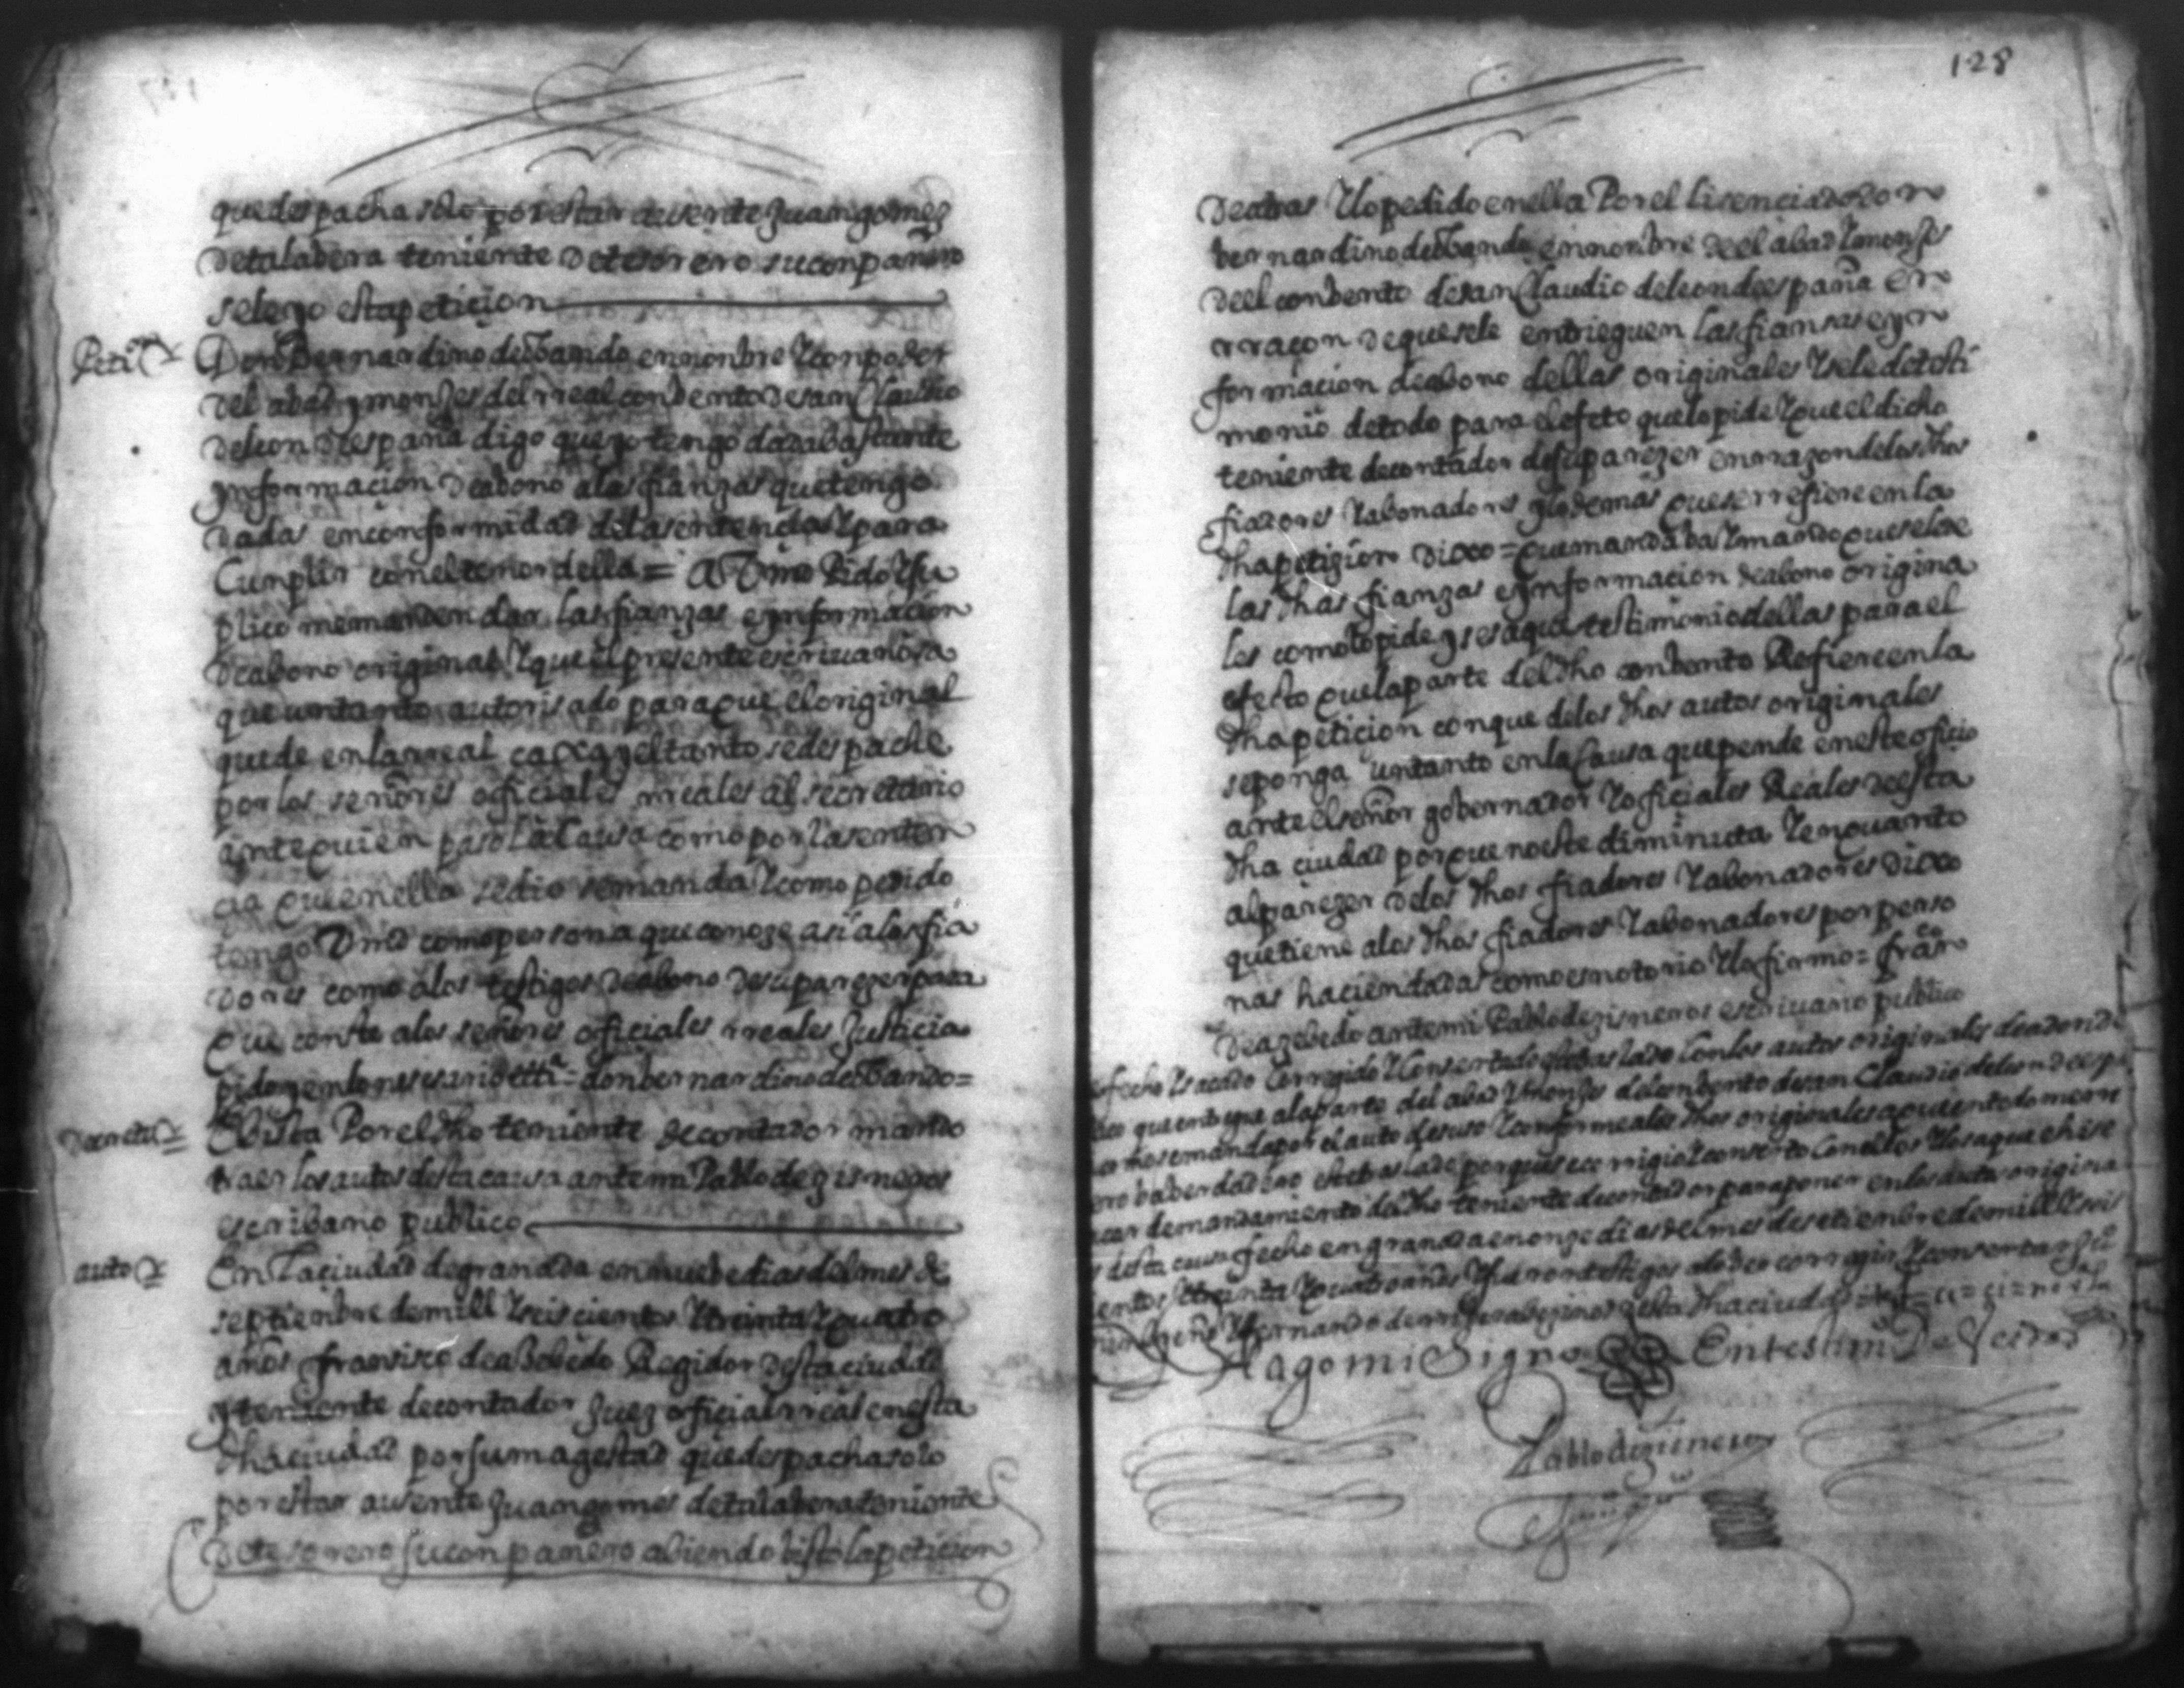 que despacha solo por estar ausente Juan gomez
de talabera teniente de tesorero su conpañero
se leyo esta peticion
Petiçon Don Bernardino de obando en nonbre y con poder
del abad y monjes del rreal conbento de san Claudio
de leon de españa digo que yo tengo dada bastante
ynformacion de abono a las fianzas que tengo
dadas en conformidad de la sentencia y para
Cunplir con el tenor della = A Vmd Pido y su
plico me manden dar las fianzas e ynformacion
de abono original y que el presente escriuano sa
que un tanto autorisado para que el original
quede en la rreal caxa y el tanto se despache
por los señores oficiales rreales al secretario
ante quien paso la Causa como por la senten
cia que en ella se dio se manda y como pedido
tengo Vmd como persona que conoze asi a los fia
dores como a los testigos de abono de su parezer para
que conste a los señores oficiales rreales Justicia
pido y en lo nesesario etta = don bernardino de obando =
Decreto E bista Por el dho teniente de contador mando
traer los autos desta causa ante mi Pablo de zisneros
escribano publico
auto En la ciudad de granada en nuebe dias del mes de
septiembre de mill y seiscientos y treinta y quatro
años francisco de asebedo Regidor desta ciudad
y teniente de contador Juez oficial rreal en esta
dha ciudad por su magestad que despacha solo
por estar ausente Juan gomes de talabera teniente
de tesorero su conpañero abiendo bisto la peticion
128
de atras y lo pedido en ella Por el lisenciado don
bernardino de obando en nonbre de el abad y monjes
de el conbento de san Claudio de leon de españa en
rraçon de que se le entrieguen las fiansas e yn
formacion de abono dellas originales y se le de testi
monio de todo para el efeto que lo pide y que el dicho
teniente de contador de su parezer en rrazon de los dhos
fiadores y abonadores y lo demas que se rrefiere en la
dha petizion dixo = que mandaba y mando que se le de
las dhas fianzas e ynformacion de abono origina
les como lo pide y se saque testimonio dellas para el
efecto que la parte del dho conbento Refiere en la
dha peticion con que de los dhos autos originales
se ponga un tanto en la Causa que pende en este oficio
ante el señor gobernador y oficiales Reales de esta
dha ciudad porque no este diminuta y en quanto
al parezer de los dhos fiadores y abonadores dixo
que tiene a los dhos fiadores y abonadores por perso
nas haciendadas como es notorio y lo firmo = franco
de azebedo ante mi Pablo de zisneros escriuano publico
fecho y sacado Corregido y Consertado este traslado Con los autos originales de a donde
que entregue a la parte del abad y monjes del conbento de san Claudio de leon de esp
como se manda por el auto de suso y conforme a los dhos originales a que en todo me rre
ero ba berdadero este traslado porque se corrigio y conserto Con ellos y lo saque e hise
sacar de mandamiento del dho teniente de contador para poner en los autos origina
s desta causa fecho en granada en onze dias del mes de setiembre de mill y seis
ientos y treinta y quatro años y fueron testigos a lo ber corregir y consertar
y fernando de bezinos desta dha ciudad
Hago mi Signo En testimo De Verdad
Pablo de zisneros